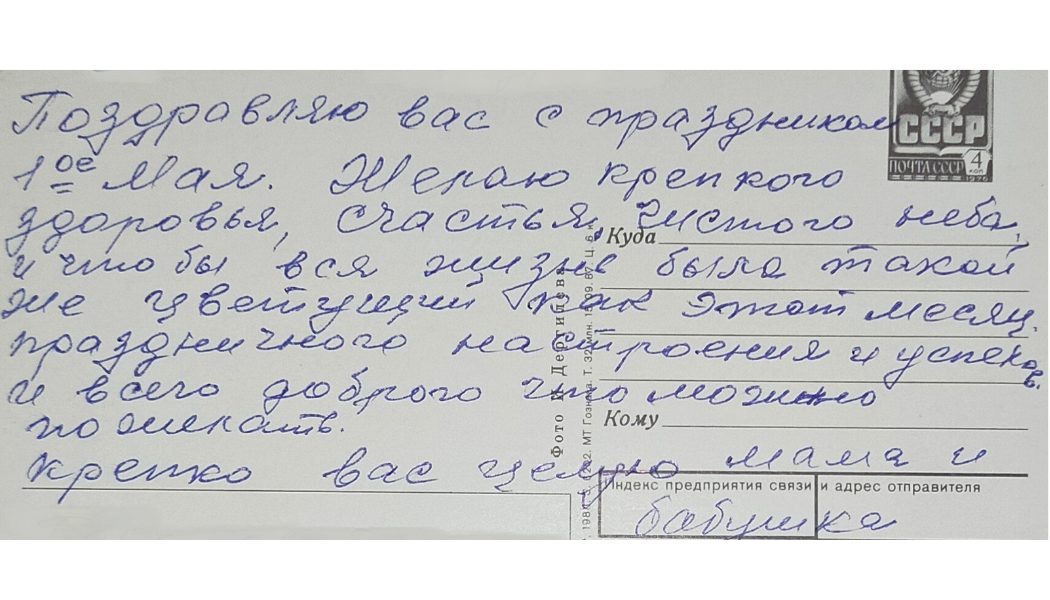 Поздравляю вас с праздником
1ое Мая. Желаю крепкого
здоровья, счастья, чистого неба,
и что бы вся жизнь была такой
же цветущий как этот месяц.
праздничного настроения и успехов.
и всего доброго что можно
пожелать.
Крепко вас целую мама и
бабушка
СССР
ПОЧТА СССР 4 КОП
1976
Куда
Кому
Индекс предприятия связи и адрес отправителя
Фото И. Дергилева
МТ Гознака. Т. 32 млн.